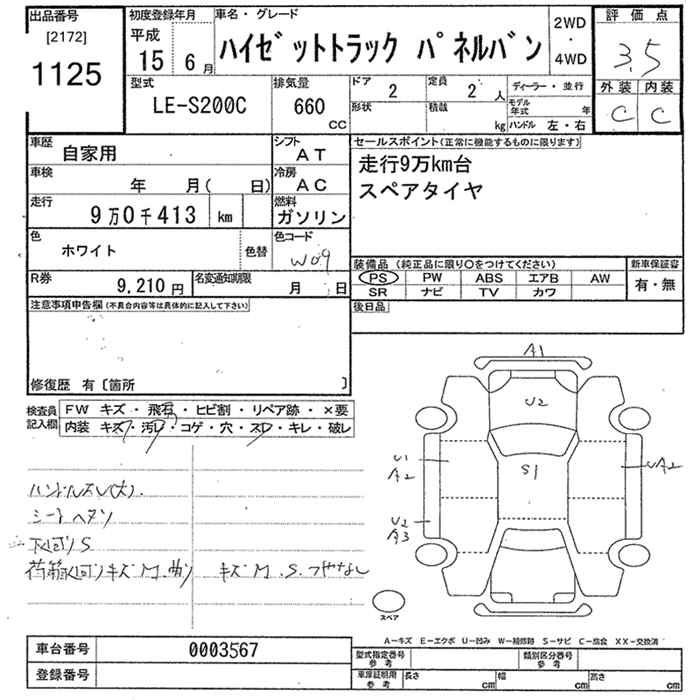 出品番号
[2172]
1125
初度登録年月
平成
15 6月
車名・グレード
ハイゼットトラック パネルバン
2WD
・
4WD
評価点
3.5
外装 内装
C C
型式
LE-S200C
排気量
660
CC
ドア 2
形状
定員 2人
積載 kg
ディーラー・並行
モデル年式 年
ハンドル 左・右
車歴
自家用
シフト
AT
車検
年 月( 日)
冷房
AC
走行
9万0千413 km
燃料
ガソリン
色
ホワイト
色替
色コード
W09
R券
9,210円
名変通知期限
月 日
セールスポイント(正常に機能するものに限ります)
走行9万km台
スペアタイヤ
装備品(純正品に限り○をつけてください)
PS PW ABS エアB AW
SR ナビ TV カワ
新車保証書
有・無
後日品
注意事項申告欄(不具合内容等は具体的に記入して下さい)
修復歴 有〔箇所 〕
検査員
記入欄
FW キズ・飛石・ヒビ割・リペア跡・×要
内装 キズ・汚レ・コゲ・穴・スレ・キレ・破レ
ハンドルスレ(大).
シートヘタリ
下回りS
荷箱回りキズM.曲り キズM.S.つやなし
A1
U2
S1
U1
A2
U2
A3
UA2
スペア
A-キズ E-エクボ U-凹み W-補修跡 S-サビ C-腐食 XX-交換済
車台番号 0003567
登録番号
型式指定番号
参考
類別区分番号
参考
車庫証明用
参考
長さ cm
幅 cm
高さ cm